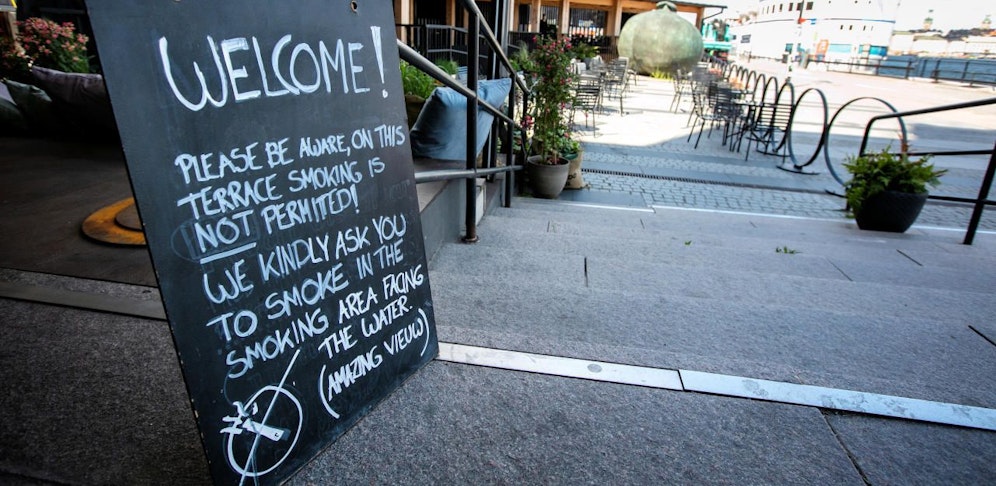 WELCOME!
PLEASE BE AWARE, ON THIS
TERRACE SMOKING IS
NOT PERMITTED!
WE KINDLY ASK YOU
TO SMOKE IN THE
SMOKING AREA FACING
THE WATER.
(AMAZING VIEUW)